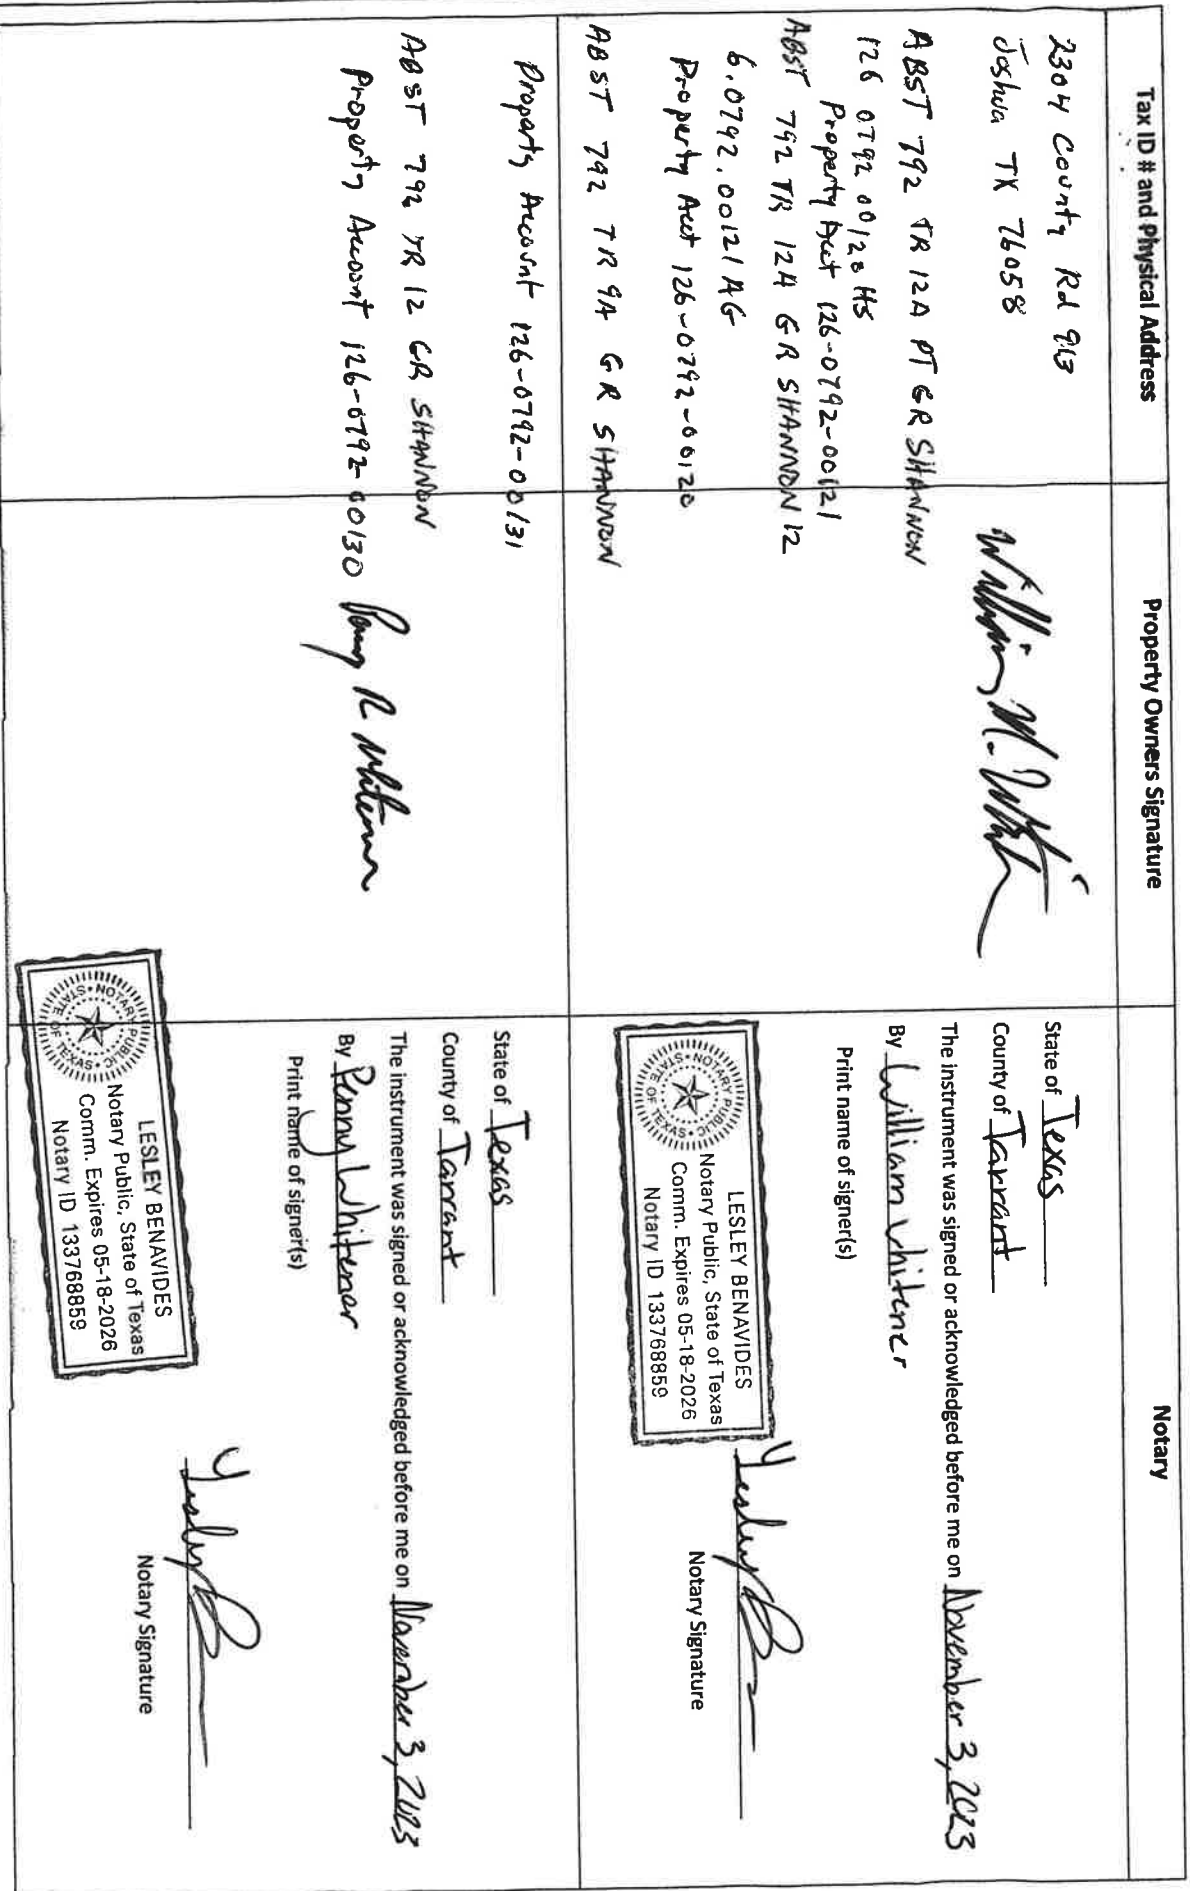 Tax ID # and Physical Address
Property Owners Signature
Notary
2304 County Rd 913
Joshua TX 76058
ABST 792 TR 12A PT GR SHANNON
126 0792 00120 HS
Property Acct 126-0792-00121
ABST 792 TR 12A GR SHANNON 12
6.0792.00121 AG
Property Acct 126-0792-00120
William M. Whitener
State of Texas
County of Tarrant
The instrument was signed or acknowledged before me on November 3, 2023
By William Whitener
Print name of signer(s)
NOTARY PUBLIC
STATE OF TEXAS
LESLEY BENAVIDES
Notary Public, State of Texas
Comm. Expires 05-18-2026
Notary ID 133768859
Notary Signature
ABST 792 TR 9A GR SHANNON
Property Account 126-0792-00131
ABST 792 TR 12 GR SHANNON
Property Account 126-0792-00130
Penny R Whitener
State of Texas
County of Tarrant
The instrument was signed or acknowledged before me on November 3, 2023
By Penny Whitener
Print name of signer(s)
NOTARY PUBLIC
STATE OF TEXAS
LESLEY BENAVIDES
Notary Public, State of Texas
Comm. Expires 05-18-2026
Notary ID 133768859
Notary Signature